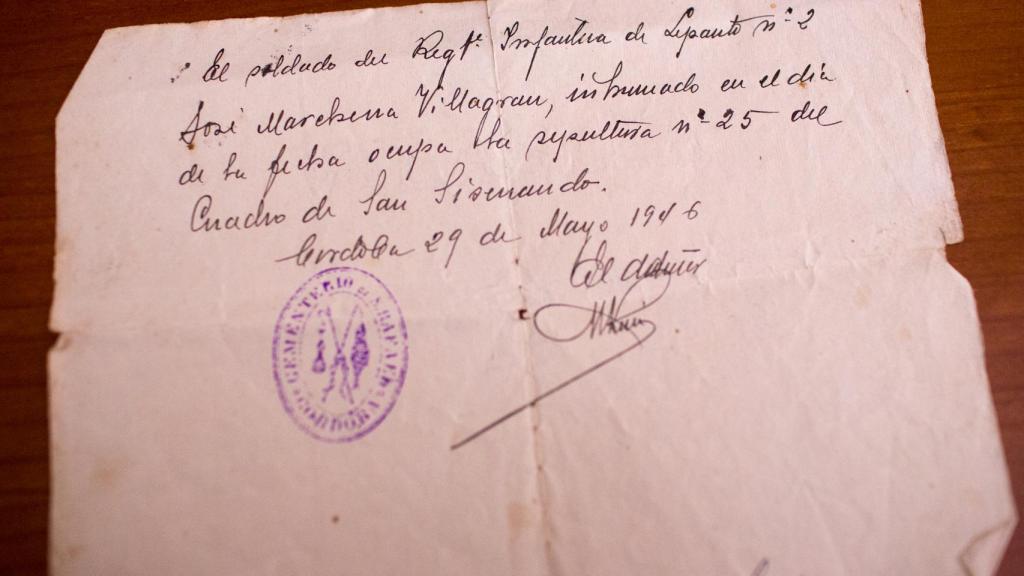 El soldado del Regtº Infantiria de Lepanto nº 2
José Marchena Villagran, inhumado en el dia
de la fecha ocupa la sepultura nº 25 del
Cuadro de San Sisenando.
Cordoba 29 de Mayo 1946
El
CEMENTERIO DE S. RAFAEL
CORDOBA